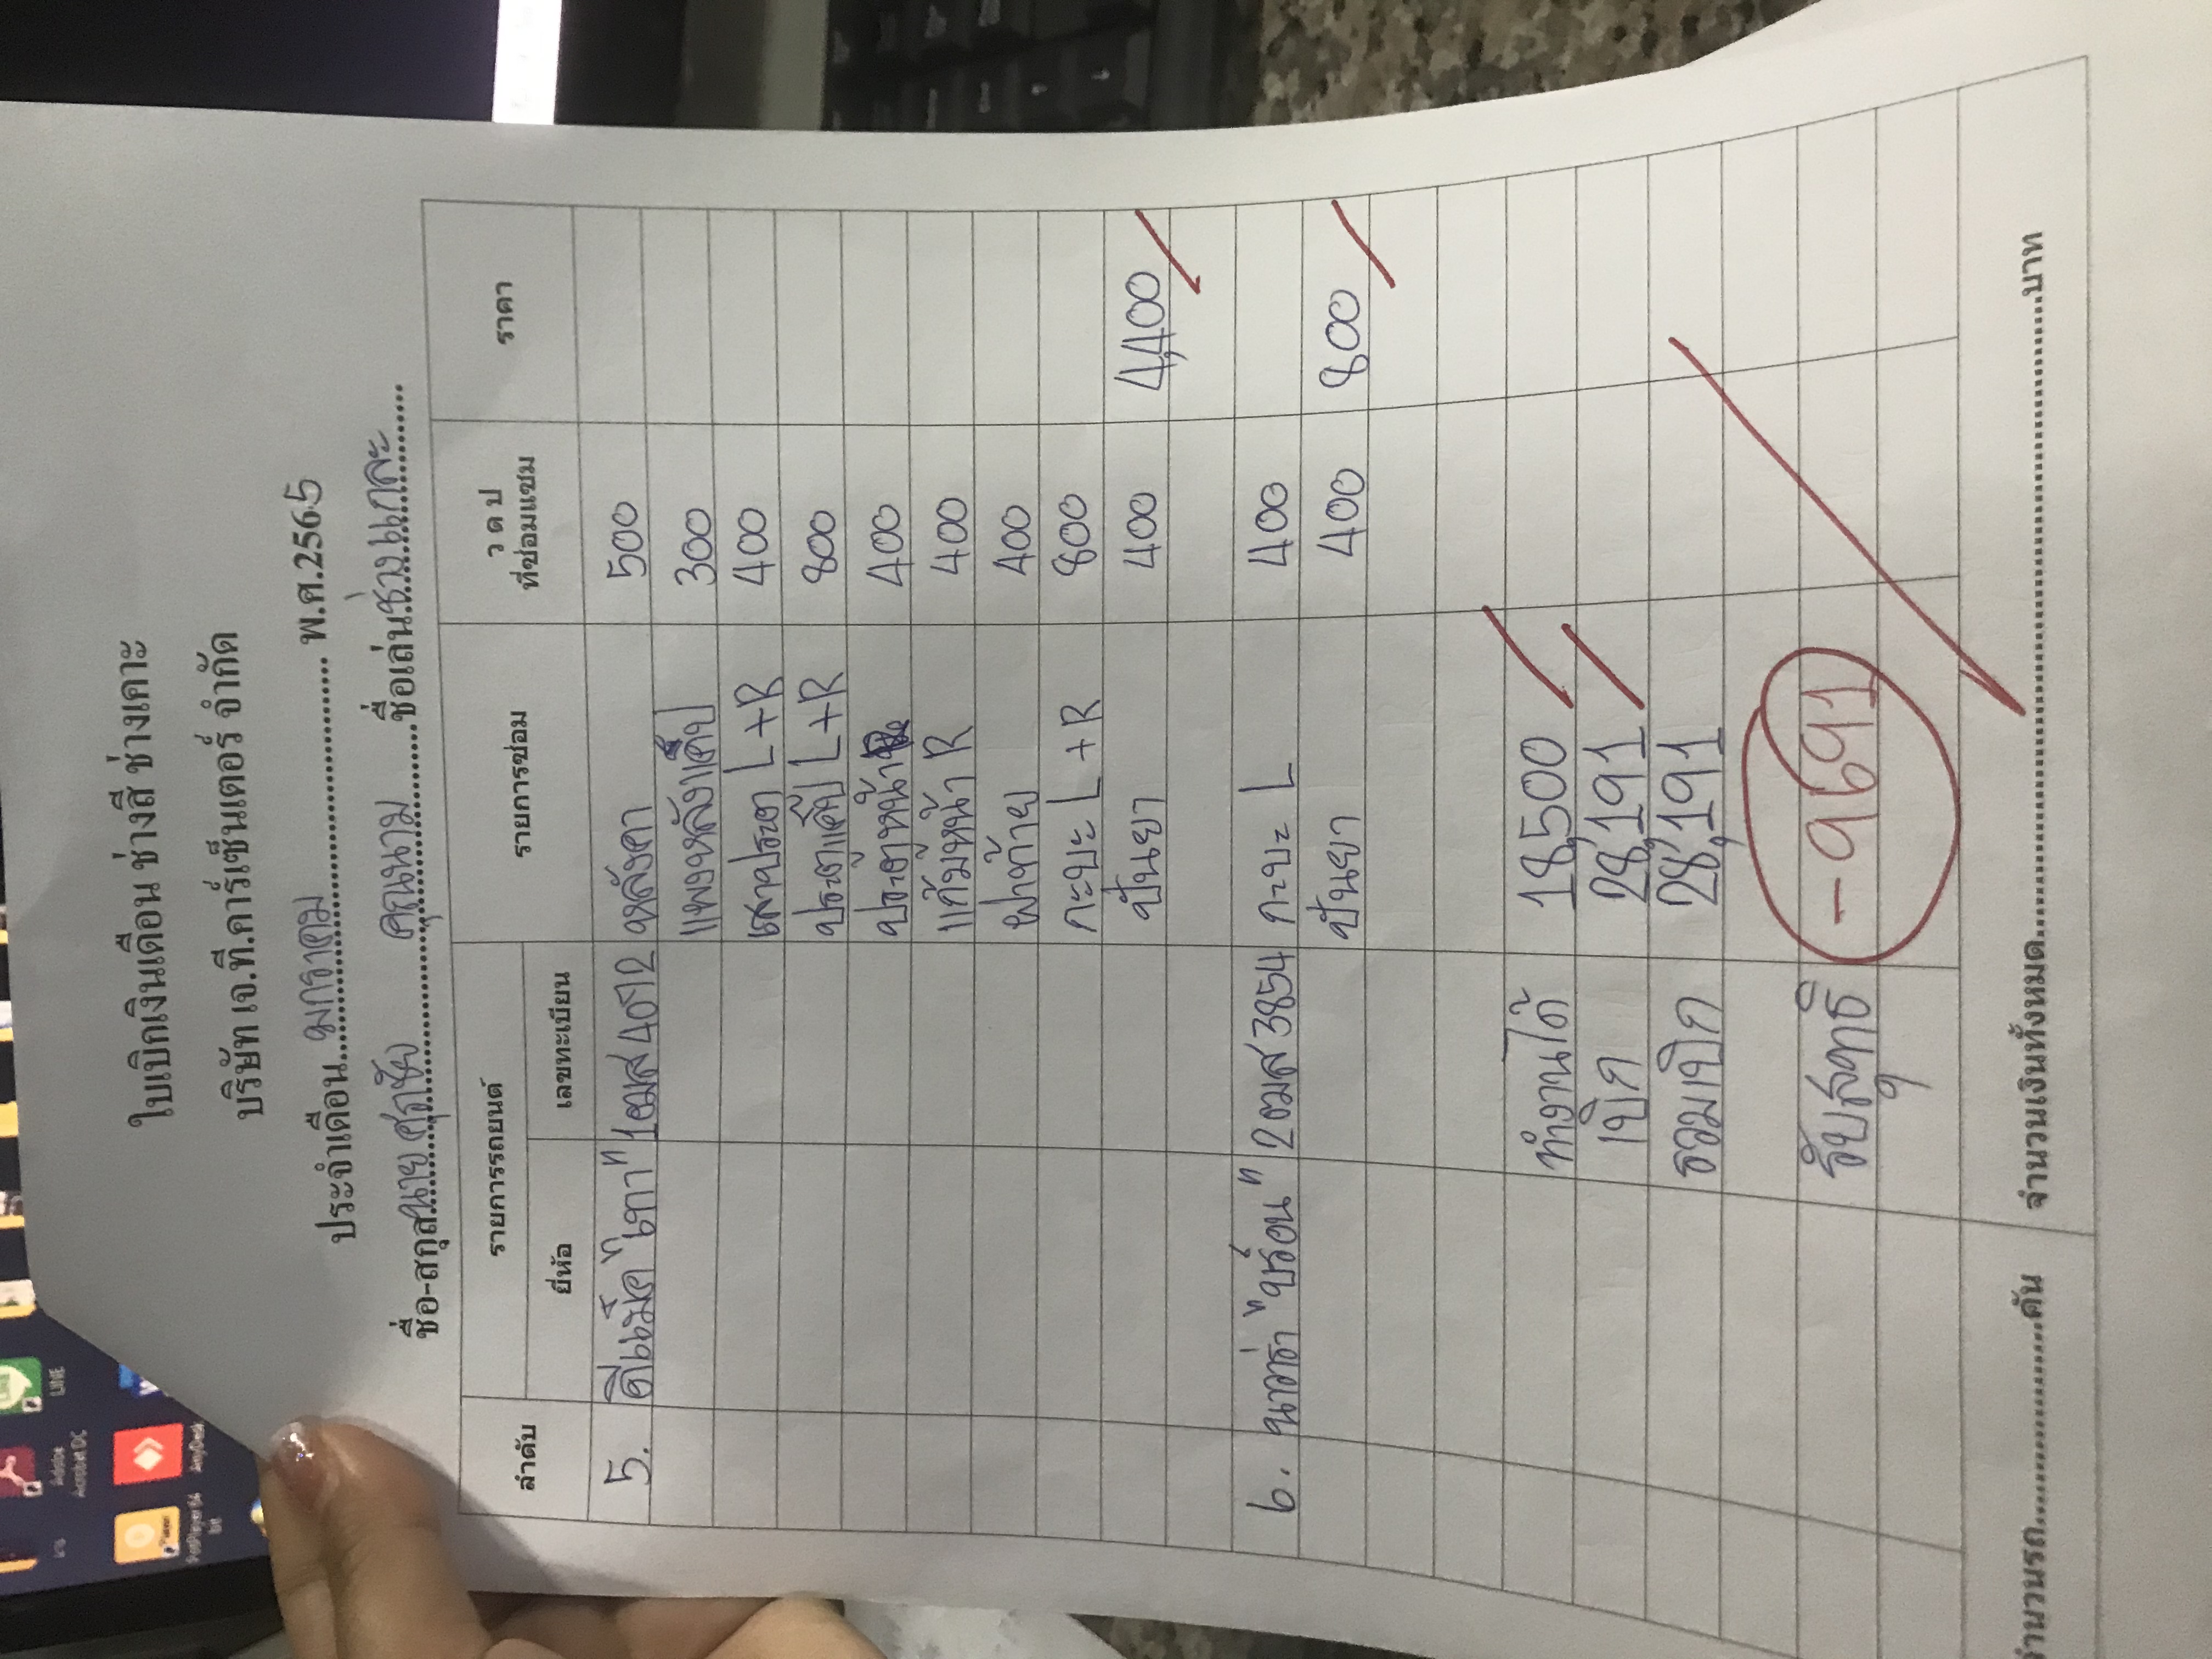 ใบเบิกเงินเดือน ช่างสี ช่างเคาะ
บริษัท เจ.ที.คาร์เซ็นเตอร์ จำกัด
ประจำเดือน มกราคม พ.ศ.2565
ชื่อ-สกุล นาย ศุภชัย คุณนาม ชื่อเล่น ช่างแกละ
ลำดับ รายการรถยนต์ รายการซ่อม ว ด ป ที่ซ่อมแซม ราคา
ยี่ห้อ เลขทะเบียน
5. ดีแม็ค "เทา" 1ฒส4072 หลังคา 500
แผงหลังแค๊ป 300
เสาประตู L+R 400
ประตูแค๊ป L+R 800
ประตูหน้า 400
แก้มหน้า R 400
ฝาท้าย 400
กะบะ L+R 800
ปั่นยา 400 4,400
6. นาวาร่า "บรอน" 2ฒส3854 กะบะ L 400
ปั่นยา 400 800
ทำงานได้ 18,500
เบิก 28,191
รวมเบิก 28,191
รับสุทธิ -9691
จำนวนรถ คัน จำนวนเงินทั้งหมด บาท
LINE
Adobe Acrobat DC
AnyDesk
PotPlayer 64 bit